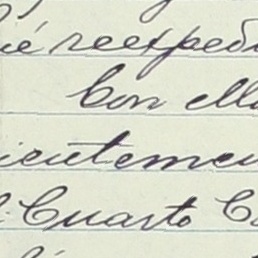 ié reexpedi
Con ella
cientemen
l. Cuarto Co